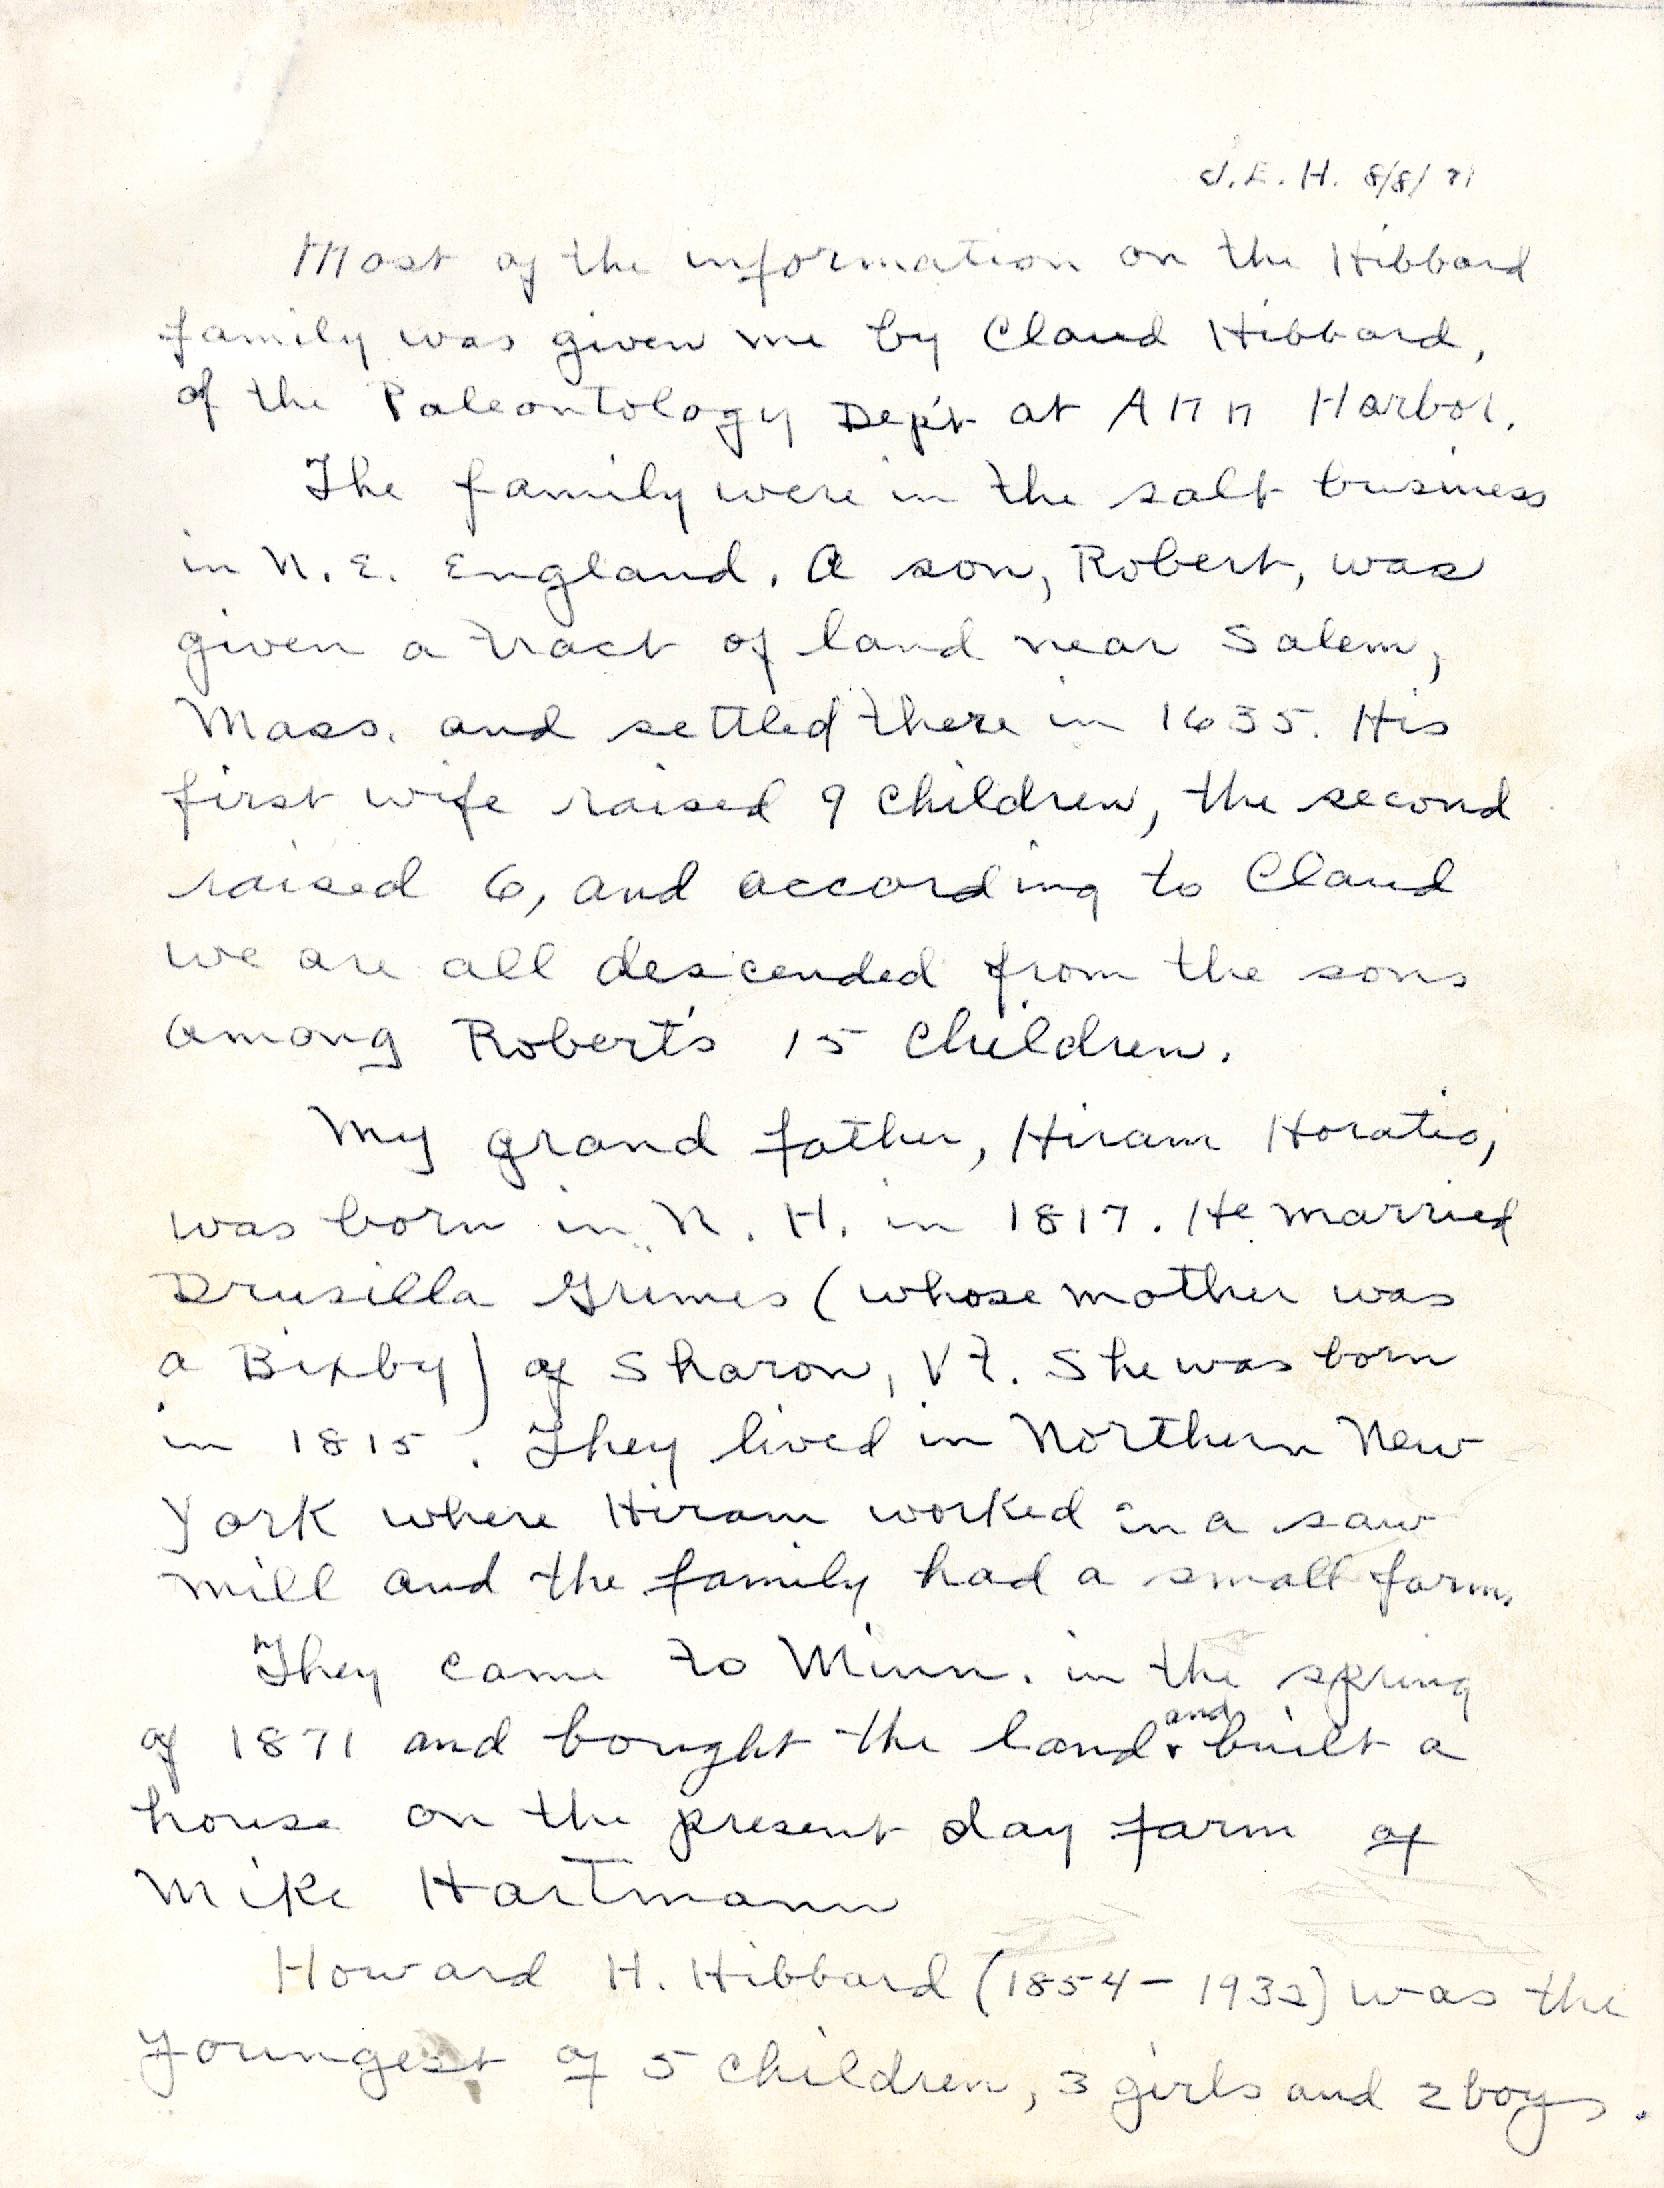 J.E.H. 8/8/71
Most of the information on the Hibbard
family was given me by Claud Hibbard,
of the Paleontology Dep't at Ann Harbor.
The family were in the salt business
in N.E. England. A son, Robert, was
given a tract of land near Salem,
Mass. and settled there in 1635. His
first wife raised 9 children, the second
raised 6, and according to Claud
we are all descended from the sons
among Robert's 15 children.
My grand father, Hiram Horatio,
was born in N.H. in 1817. He married
Drusilla Grimes (whose mother was
a Bixby) of Sharon, Vt. She was born
in 1815. They lived in Northern New
York where Hiram worked in a saw
mill and the family had a small farm.
They came to Minn. in the spring
of 1871 and bought the land and built a
house on the present day farm of
Mike Hartmann
Howard H. Hibbard (1854-1932) was the
youngest of 5 children, 3 girls and 2 boys.